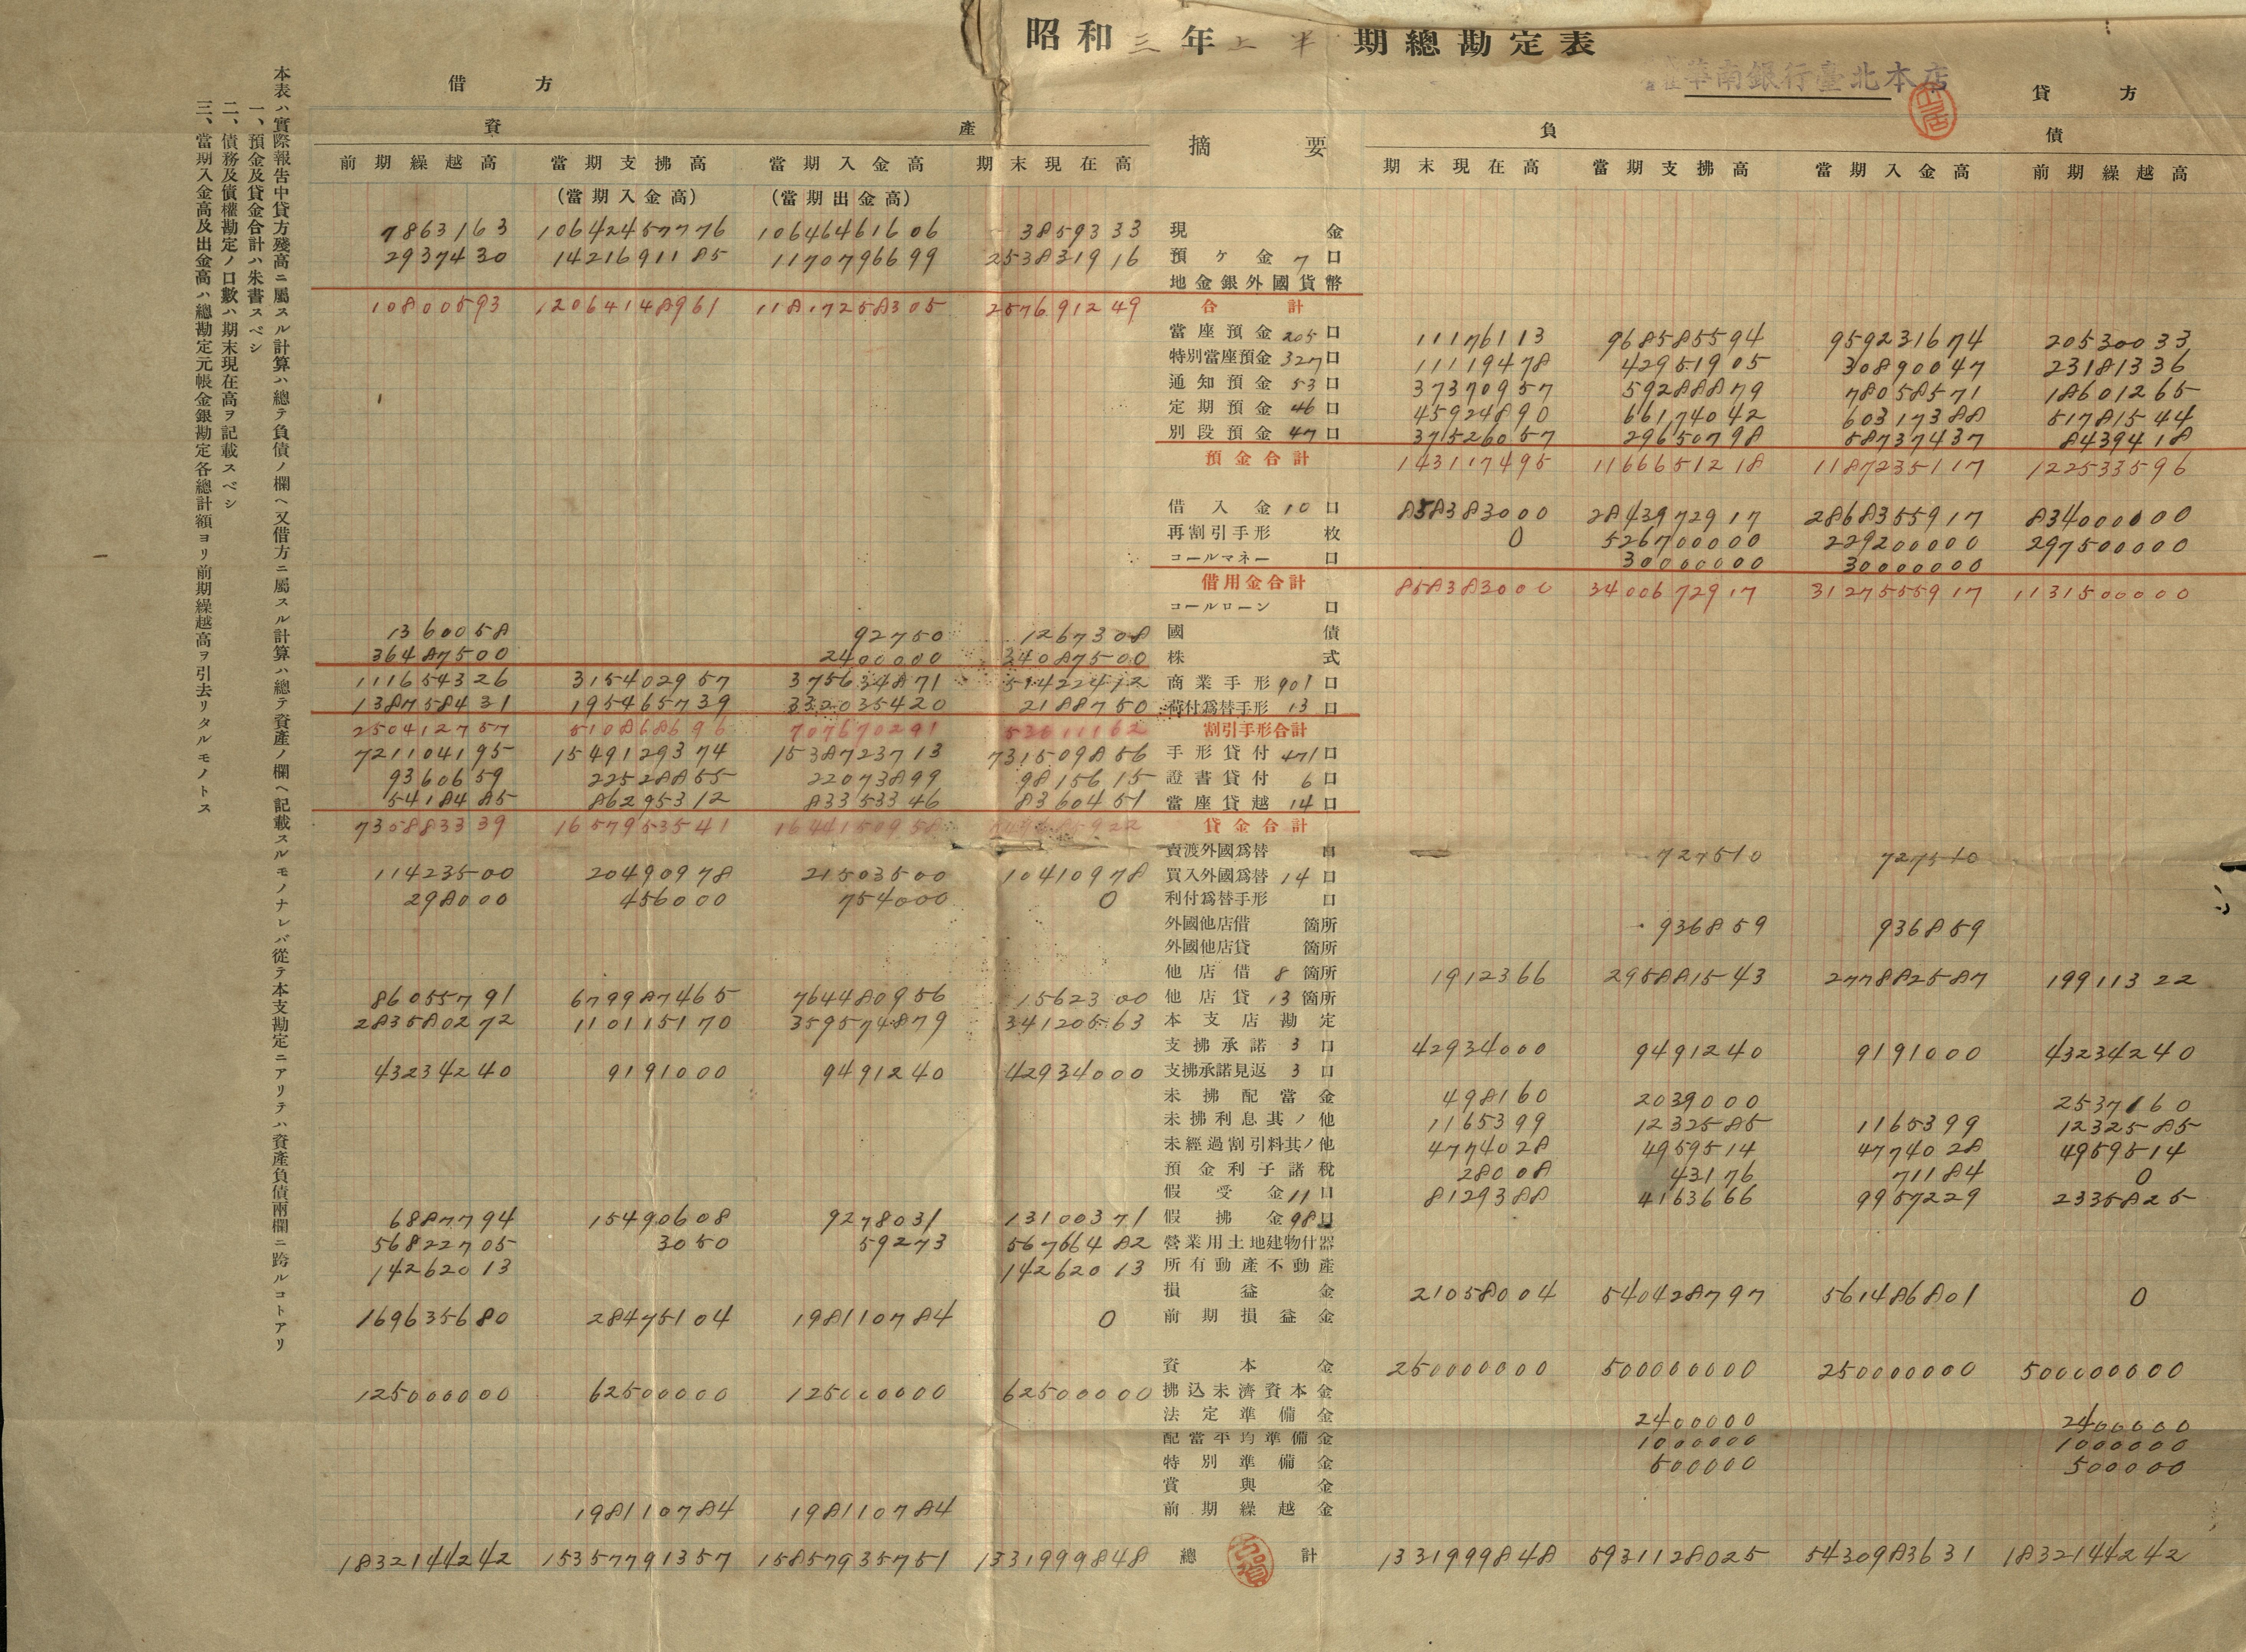 昭和三年上半期總勘定表
華南銀行臺北本店
借方 貸方
資產 摘要 負債
前期繰越高 當期支拂高 當期入金高 期末現在高 期末現在高 當期支拂高 當期入金高 前期繰越高
(當期入金高) (當期出金高)
7863163 10642457776 10646461606 3859333 現金
2937430 1421691185 1170796699 253831916 預ヶ金 7口
地金銀外國貨幣
10800593 12064148961 11817258305 257691249 合計
當座預金 205口 11176113 968585594 959231674 20530033
特別當座預金 327口 11119478 42951905 30890047 23181336
通知預金 53口 37370957 59288879 78058571 18601265
定期預金 46口 45924890 66174042 60317388 51781544
別段預金 47口 37526057 29650798 58737437 8439418
預金合計 143117495 1166651218 1187235117 122533596
借入金 10口 858383000 2843972917 2868355917 834000000
再割引手形 枚 0 526700000 229200000 297500000
コールマネー 口 30000000 30000000
借用金合計 858383000 3400672917 3127555917 1131500000
コールローン 口
1360058 92750 1267308 國債
36487500 2400000 34087500 株式
111654326 315402957 375634871 51422412 商業手形 901口
138758431 195465739 332035420 2188750 荷付爲替手形 13口
250412757 510868696 707670291 53611162 割引手形合計
721104195 1549129374 1538723713 731509856 手形貸付 471口
9360659 22528855 22073899 9815615 證書貸付 6口
5418485 86295312 83353346 8360451 當座貸越 14口
730883339 1657953541 1644150958 貸金合計
賣渡外國爲替 口 727510 727510
11423500 20490978 21503500 10410978 買入外國爲替 14口
298000 456000 754000 0 利付爲替手形 口
外國他店借 箇所 936859 936859
外國他店貸 箇所
他店借 8箇所 1912366 295881543 277882587 19911322
86055791 679987465 764480956 1562300 他店貸 13箇所
283580272 110115170 359574879 34120563 本支店勘定
支拂承諾 3口 42934000 9491240 9191000 43234240
43234240 9191000 9491240 42934000 支拂承諾見返 3口
未拂配當金 498160 2039000 2537160
未拂利息其ノ他 1165399 1232585 1165399 1232585
未經過割引料其ノ他 4774028 4959514 4774028 4959514
預金利子諸稅 28008 43176 71184 0
假受金 11口 8129388 4163666 9957229 2335825
6887794 15490608 9278031 13100371 假拂金 98口
56822705 3050 59273 56766482 營業用土地建物什器
14262013 14262013 所有動產不動產
損益金 21058004 540428797 561486801 0
169635680 28475104 198110784 0 前期損益金
資本金 250000000 500000000 250000000 500000000
125000000 62500000 125000000 62500000 拂込未濟資本金
法定準備金 2400000 2400000
配當平均準備金 1000000 1000000
特別準備金 500000 500000
賞與金
198110784 198110784 前期繰越金
1832144242 15357791357 15857935751 1331999848 總計 1331999848 5931128025 5430983631 1832144242
本表ハ實際報告中貸方殘高ニ屬スル計算ハ總テ負債ノ欄ヘ又借方ニ屬スル計算ハ總テ資產ノ欄ヘ記載スルモノナレバ從テ本支勘定ニアリテハ資產負債兩欄ニ跨ルコトアリ
一、預金及貸金合計ハ朱書スベシ
二、債務及債權勘定ノ口數ハ期末現在高ヲ記載スベシ
三、當期入金高及出金高ハ總勘定元帳金銀勘定各總計額ヨリ前期繰越高ヲ引去リタルモノトス